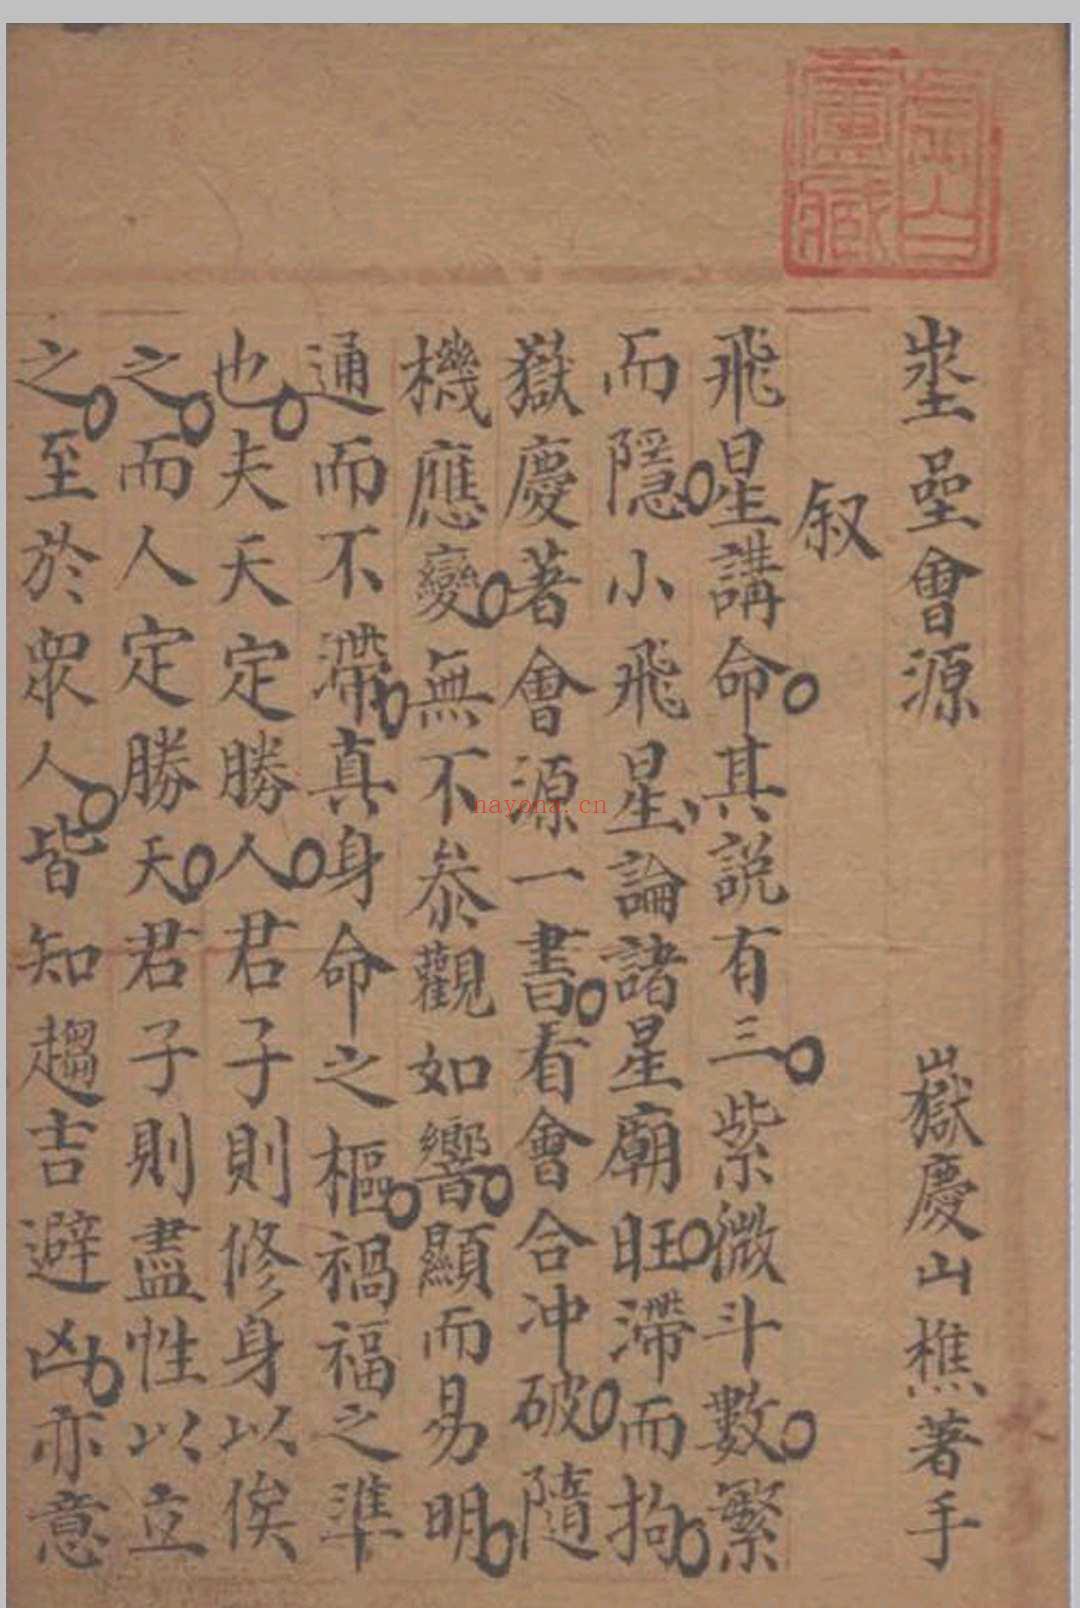 壘會源
嶽慶山樵著手
叙
飛星講命。其說有三。紫微斗數。繁
而隱。小飛星、論諸星廟旺。滯而拘。
嶽慶著會源一書。看會合冲破。隨
機應變。無不叅觀如響。顯而易明。
通而不滯。真身命之樞。禍福之準
也。夫天定勝人。君子則修身以俟
之。而人定勝天。君子則盡性以立
之。至於眾人。皆知趨吉避凶。亦意
nayona.cn